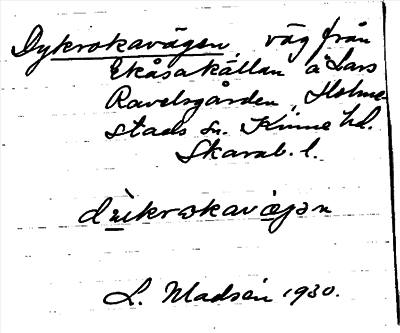 Dykrokavägen, väg från
Ekåsakällan å Lars
Ravelsgården, Holme-
stads sn. Kinne hd.
Skarab. l.
L. Madsén 1930.